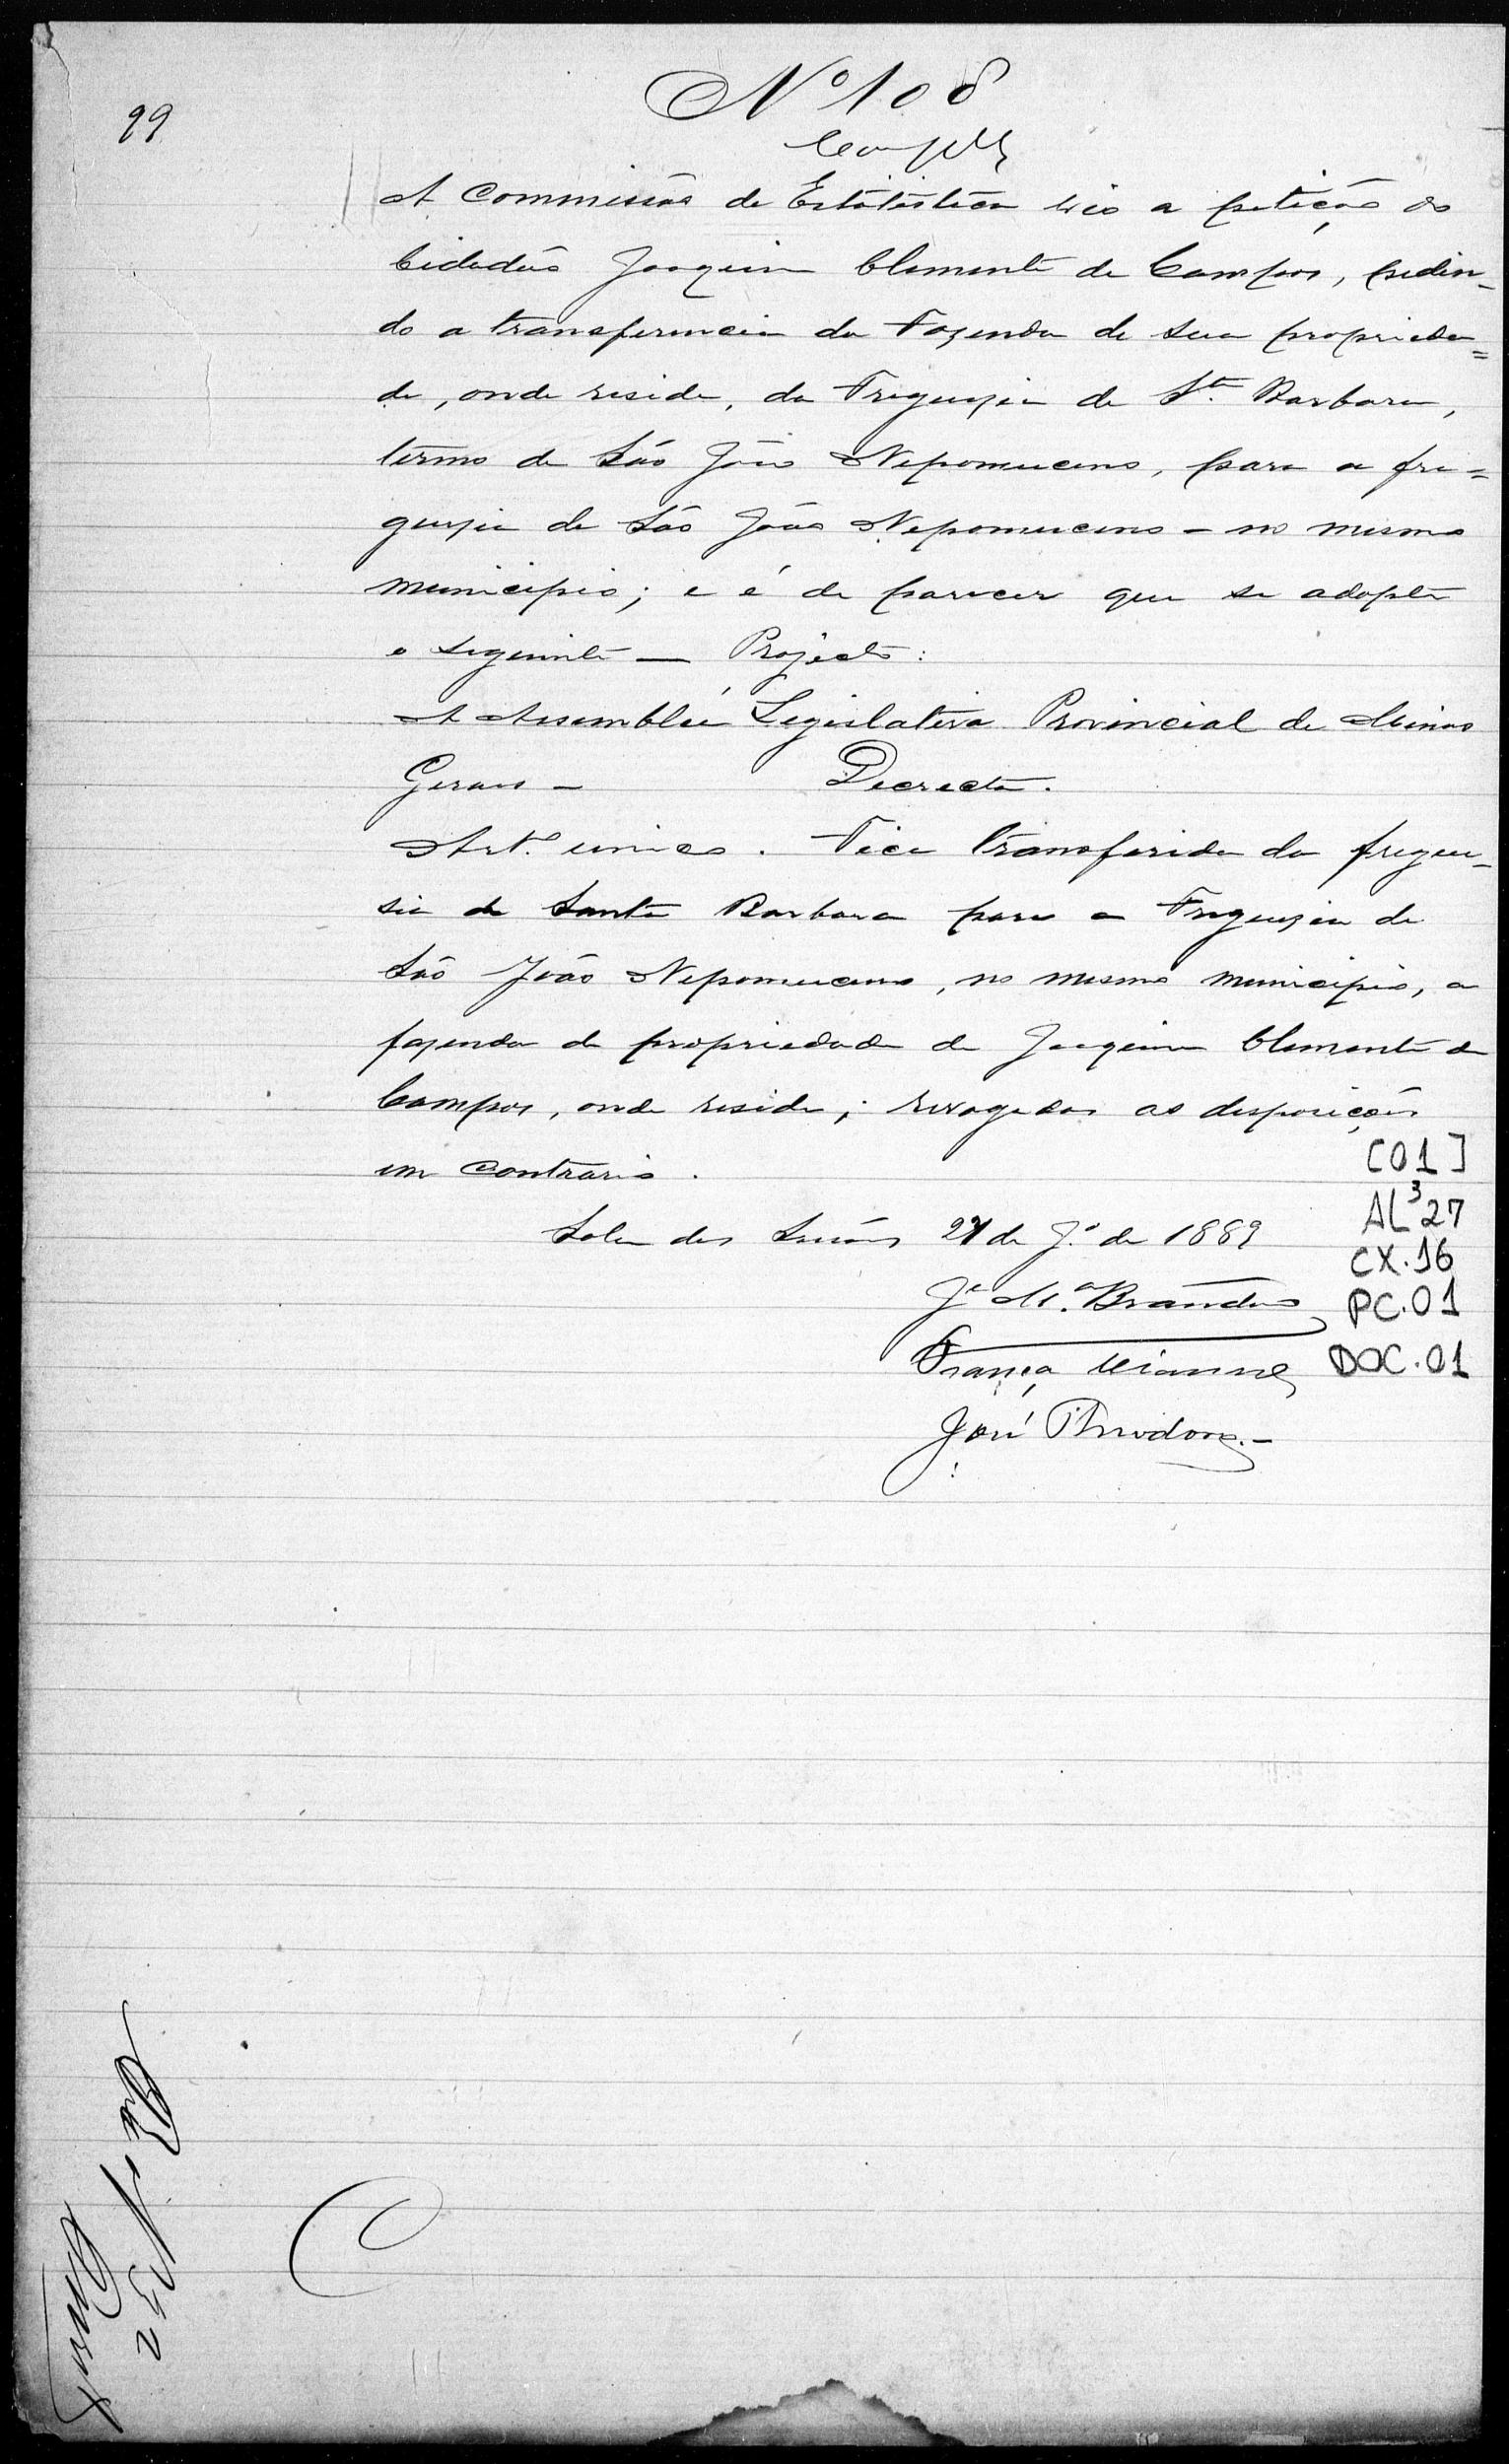 Nº 108
99
A Commissão de Estatistica vio a petição do
Cidadão Joaquim Clemente de Campos, pedin-
do a transferencia da Fazenda de sua proprieda=
de, onde reside, da Freguezia de Sta. Barbara,
termo de São João Nepomuceno, para a fre=
guezia de São João Nepomuceno - no mesmo
municipio; e é de parecer que se adopte
o seguinte — Projecto:
A Assembléa Legislativa Provincial de Minas
Geraes - Decreta.
Art.º unico. Fica transferida da fregue-
sia de Santa Barbara para a Freguezia de
São João Nepomuceno, no mesmo municipio, a
fazenda de propriedade de Joaquim Clemente de
Campos, onde reside; revogadas as disposições
em contrario.
Sala das Sessões 27 de J.º de 1889
Je. M.a Brandão
França Vianna
José Theodoro.-
[01]
AL³27
CX.16
PC.01
DOC.01